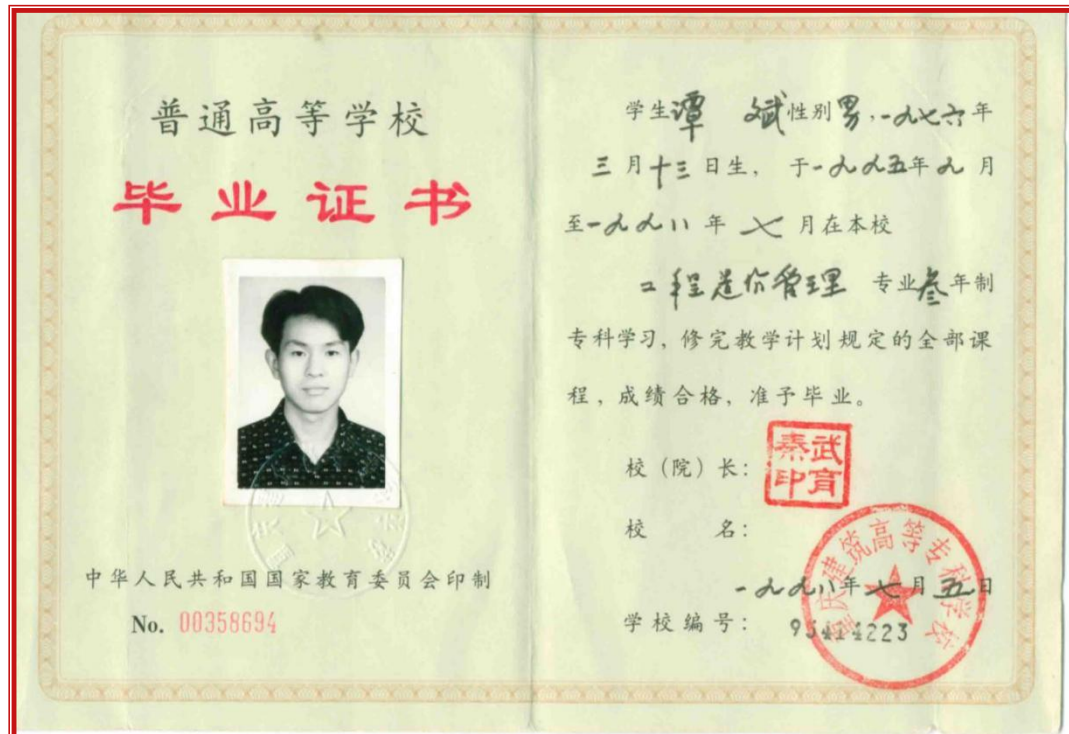 普通高等学校
毕业证书
中华人民共和国国家教育委员会印制
No. 00358694
学生谭 斌性别男,一九七六年
三月十三日生, 于一九九五年九月
至一九九八年七月在本校
工程造价管理 专业叁年制
专科学习, 修完教学计划规定的全部课
程, 成绩合格, 准予毕业。
校(院)长: 武育秦印
校 名:
重庆建筑高等专科学校
一九九八年七月五日
学校编号: